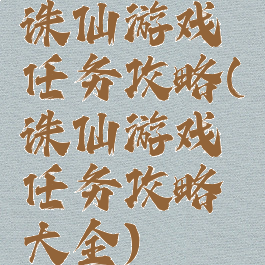 诛仙游戏
任务攻略(
诛仙游戏
任务攻略
大全)